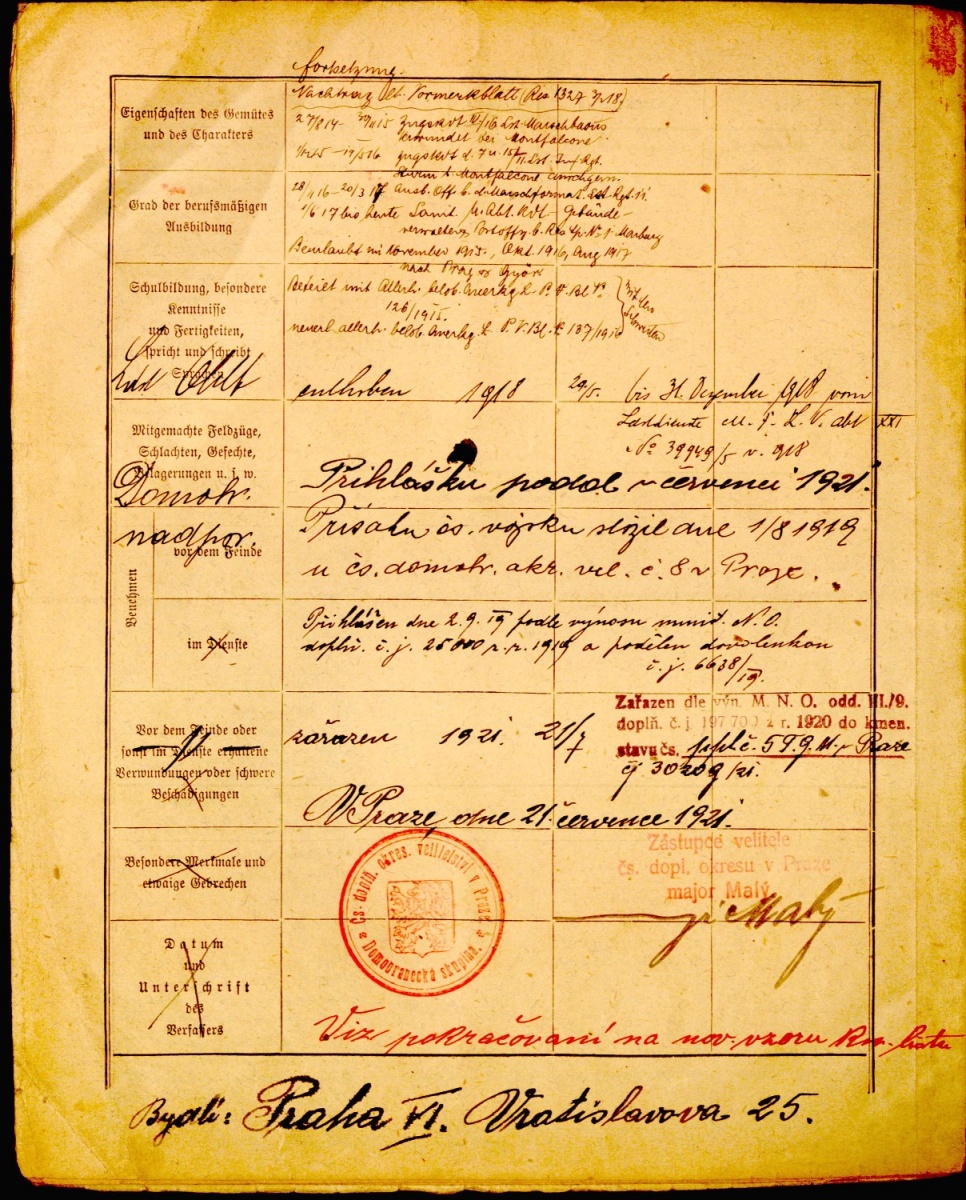 Fortsetzung.
Nachtrag lt. Vormerkblatt (Res 1327 18)
Eigenschaften des Gemütes
und des Charakters
27/8 14 – 15 Zugskdt 16 Lst. Marschbaons
verwundet bei Montfalcone
Zugskdt d. 7 u. 15/II. Lst. Inf. Rgt.
Sturm b. Montfalcone
Grad der berufsmäßigen
Ausbildung
28/ 16 – 20/3 17 Ausb. Off. b. d. Marschformat. Lst. Rgt.
1/6 17 bis heute Sanit. Abt. Kdt Gebäude-
verwalter, b. Res. Sp. No 1 Marburg
Beurlaubt im November 1915, Okt. 1916, Aug 1917
nach Prag Győr
Schulbildung, besondere
Kenntnisse
und Fertigkeiten,
spricht und schreibt
Sprachen
Beteilt mit Allerh. belob. Anerkg. L. P. V. Bl. No
126/1915.
neuerl. allerh. belob. Anerkg. L. P. V. Bl. 137/1916
mit den
Schwertern
Lst Oblt
enthoben 1918 29/5. bis 31. Dezember 1918 vom
M. f. L. V. abt XXI
No 39949/5 v. 918
Mitgemachte Feldzüge,
Schlachten, Gefechte,
Belagerungen u. s. w.
Domobr.
nadpor.
Přihlášku podal v červenci 1921.
Benehmen
vor dem Feinde
Přísahu čs. vojsku složil dne 1/8 1919
u čs. domobr. okr. vel. č. 8 v Praze.
im Dienste
Přihlášen dne 2. 9. 19 podle výnosu minist. N. O.
doplň. č. j. 25000 z. r. 1919 a podělen dovolenkou
č. j. 6638/19.
Vor dem Feinde oder
sonst im Dienste erhaltene
Verwundungen oder schwere
Beschädigungen
zařazen 1921. 21/7
Zařazen dle výn. M. N. O. odd. III./9.
doplň. č. j 197 700 z r. 1920 do kmen.
stavu čs. č. 5 v Praze
čj 30209/21.
V Praze, dne 21. července 1921.
Besondere Merkmale und
etwaige Gebrechen
Čs. dopln. okres. velitelství v Praze
Domobranecká skupina.
Zástupce velitele
čs. dopl. okresu v Praze
major Malý
Malý
Datum
und
Unterschrift
des
Verfassers
Viz pokračování na nov. vzoru km. listu
Bydlí: Praha VI. Vratislavova 25.